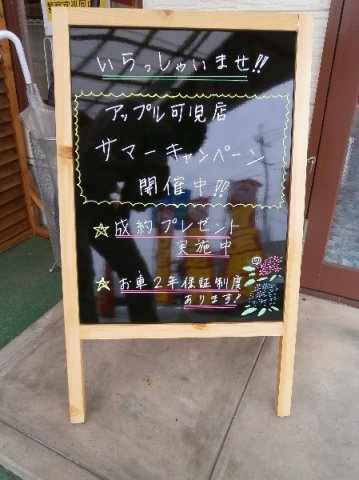 いらっしゃいませ!!
アップル可児店
サマーキャンペーン
開催中!!
☆成約プレゼント
実施中
☆お車2年保証制度
あります!